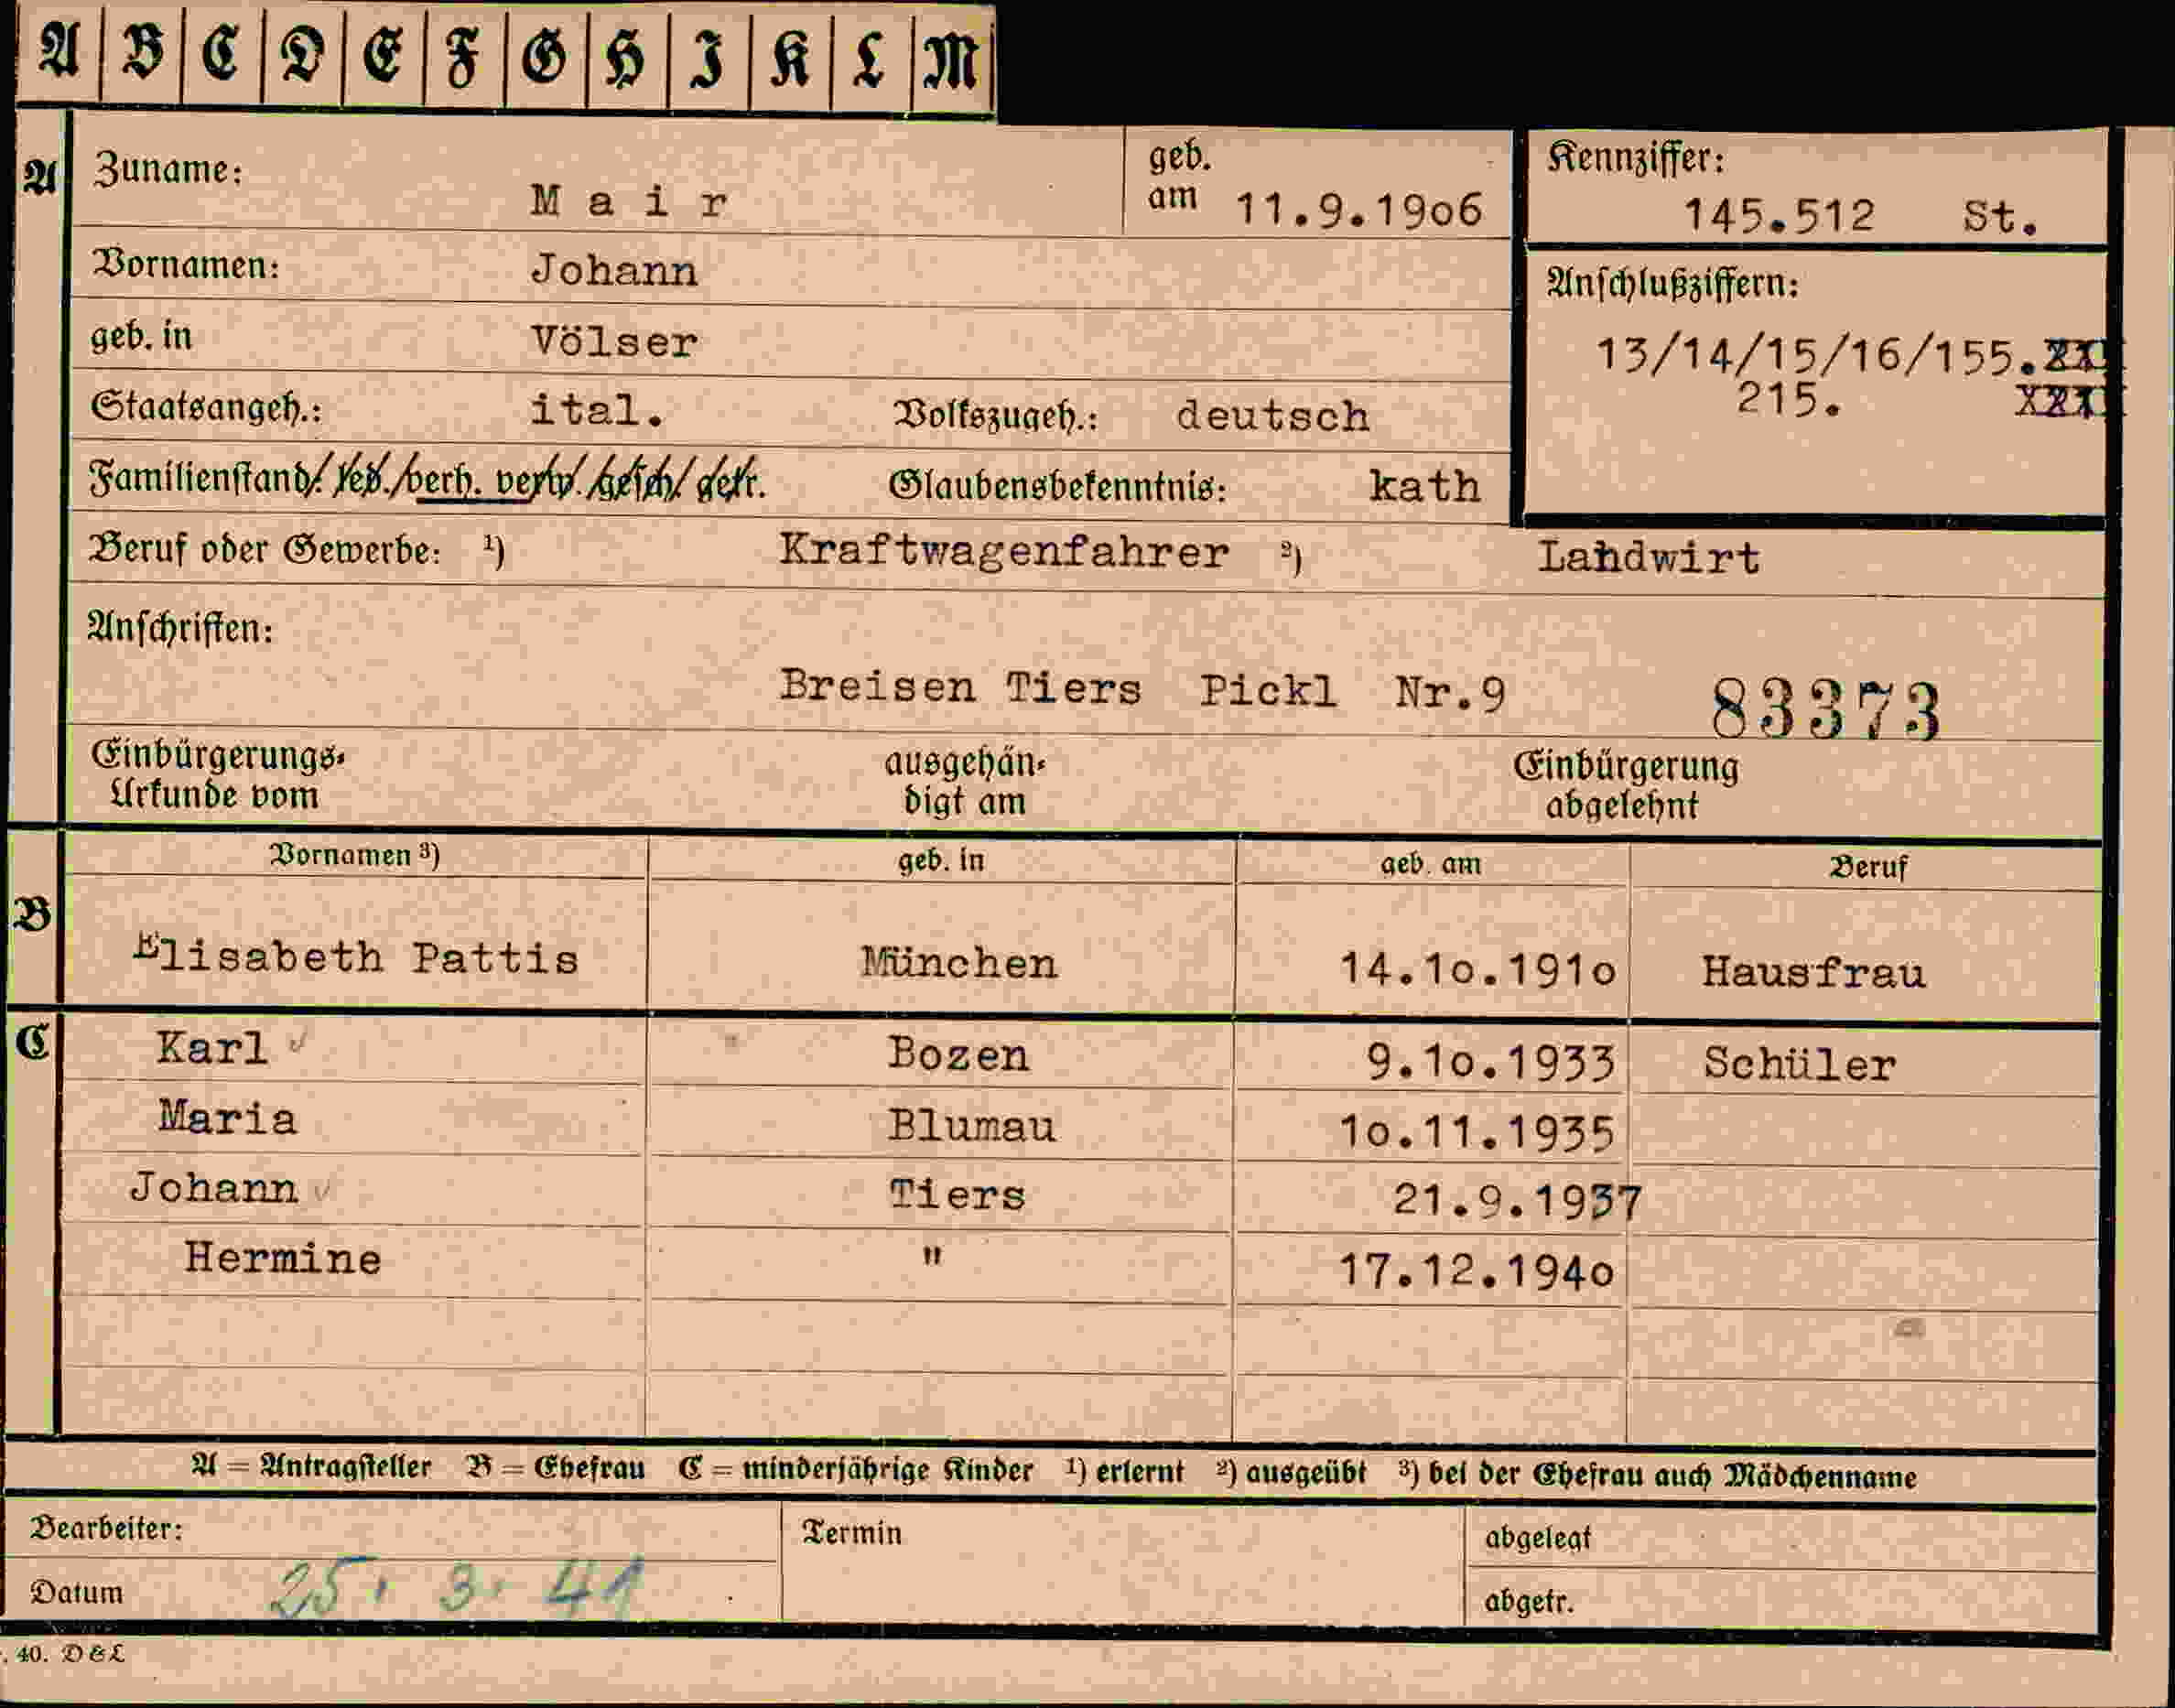 A B C D E F G H I K L M
A Zuname: Mair geb. am 11.9.19o6 Kennziffer: 145.512 St.
Vornamen: Johann Anschlußziffern:
geb. in Völser 13/14/15/16/155.
Staatsangeh.: ital. Volkszugeh.: deutsch 215.
Familienstand: led. verh. verw. gesch. getr. Glaubensbekenntnis: kath
Beruf oder Gewerbe: ¹) Kraftwagenfahrer ²) Landwirt
Anschriften:
Breisen Tiers Pickl Nr.9 83373
Einbürgerungs- ausgehän- Einbürgerung
Urkunde vom digt am abgelehnt
Vornamen ³) geb. in geb. am Beruf
B Elisabeth Pattis München 14.1o.191o Hausfrau
C Karl Bozen 9.1o.1933 Schüler
Maria Blumau 1o.11.1935
Johann Tiers 21.9.1937
Hermine " 17.12.194o
A = Antragsteller B = Ehefrau C = minderjährige Kinder ¹) erlernt ²) ausgeübt ³) bei der Ehefrau auch Mädchenname
Bearbeiter: Termin abgelegt
Datum 25. 3. 41 abgetr.
. 40. D & L